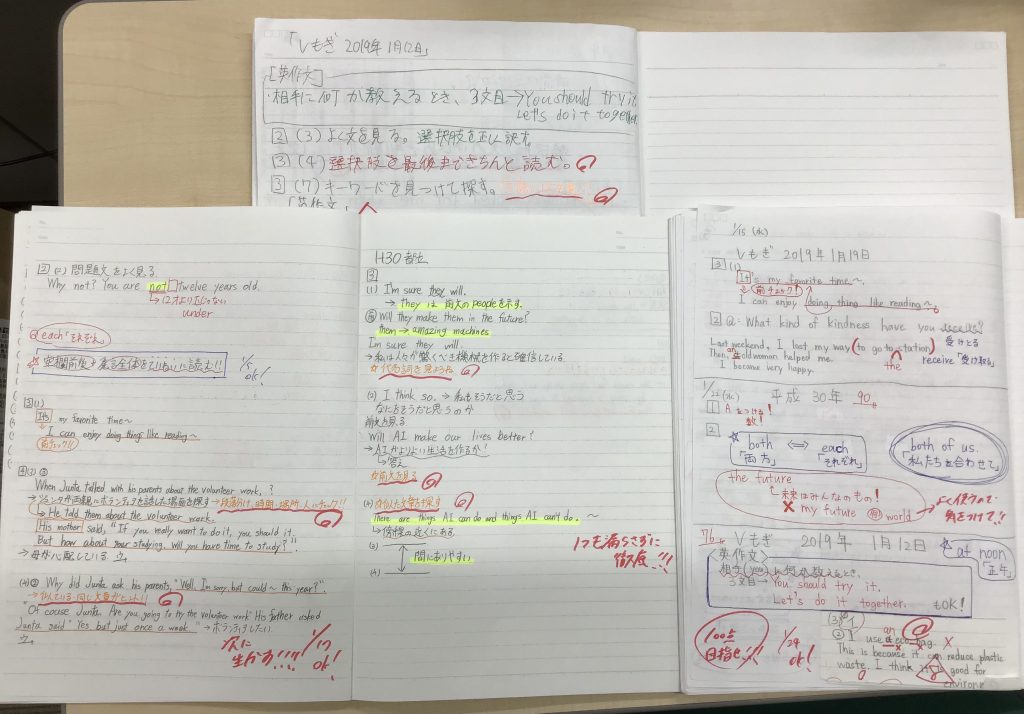 「Vもぎ 2019年 1月12日」
[英作文]
・相手に何か教えるとき、3文目→You should try it
Let's do it together
2 (3) よく文を見る。選択肢を正しく読む。
3 (4) 選択肢を最後まできちんと読む。
3 (7) キーワードを見つけて探す。
「英作文」
2 (2) 問題文をよく見る
Why not? You are not twelve years old.
→12才より
under
each「それぞれ」
1/5 ok!
3 (1)
It's my favorite time~
I can enjoy doing things like reading~
前チェック!!
4 (3) ③
When Junta talked with his parents about the volunteer work, ?
→ジュンタが両親にボランティアを話した場面を探す→段落分け、時間、場所、人にチェック!!
→He told them about the volunteer work.
His mother said, "If you really want to do it, you should.
But how about your studying. Will you have time to study?"
→母が心配している
(4) ③ Why did Junta ask his parents, "Well. I'm sorry, but could~ this year?"
"Of couse Junta. Are you going to try the volunteer work" His father asked
Junta said "Yes but just once a week." →ボランティアしたい
次に
生かす!!!!
1/17
ok!
H30
3
(1) I'm sure they will.
→they は 前文の peopleを示す。
Will they make them in the future?
them → amazing machines
I'm sure they will.
→私は人々が驚くべき機械を作ると確信している。
☆代名詞を見よう
(2) I think so. →私もそうだと思う
なにをそうだと思うのか
前文を見る
Will AI make our lives better?
→AIがよりよい生活を作るか?
→答え
☆前文を見る
There are things AI can do and things AI can't do. ~
(3)
間にありやすい
(4)
1つも漏らさずに
徹底!!!
1/15 (水)
Vもぎ 2019年 1月19日
3 (1)
It's my favorite time~
前チェック!
I can enjoy doing thing like reading~
2 Q: What kind of kindness have you
受けとる
Last weekend, I lost my way (to go to station)
the
receive「受け取る」
Then, an old woman helped me.
I became very happy.
1/22 (水) 平成 30年 90
1 Aをつける!
数!
2
☆ both ⇔ each
「両方」「それぞれ」
both of us
「私たちを合わせて」
the future
→未来はみんなのもの!
× my future world
よく使うので
気をつけて!!
Vもぎ 2019年 1月12日
at noon
「正午」
<英作文>
相手(you)に何か教えるとき、
3文目→You should try it.
Let's do it together. もOK!
100点
目指せ!!!
1/29
ok!
an
② I use a eco bag. ×
This is because it can reduce plastic
waste. I think it is good for
environ